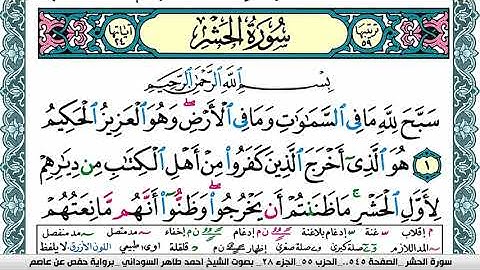 ترتيبها ٥٩ سُورَةُ الْحَشْرِ آياتها ٢٤
بِسْمِ اللَّهِ الرَّحْمَٰنِ الرَّحِيمِ
سَبَّحَ لِلَّهِ مَا فِي السَّمَاوَاتِ وَمَا فِي الْأَرْضِ ۖ وَهُوَ الْعَزِيزُ الْحَكِيمُ
١ هُوَ الَّذِي أَخْرَجَ الَّذِينَ كَفَرُوا مِنْ أَهْلِ الْكِتَابِ مِن دِيَارِهِمْ
لِأَوَّلِ الْحَشْرِ ۚ مَا ظَنَنتُمْ أَن يَخْرُجُوا ۖ وَظَنُّوا أَنَّهُم مَّانِعَتُهُمْ
م إقلاب غنة إدغام بلاغنة ن م إدغام ن م إخفاء مد متصل مد منفصل
المد اللازم صلة كبرى وصلة صغرى إظهار ن م قلقلة أوى طبيعي اللون الأزرق لا يلفظ
سورة الحشر .الصفحة ٥٤٥.. الحزب ٥٥ .الجزء ٢٨. بصوت الشيخ احمد طاهر السوداني .برواية حفص عن عاصم